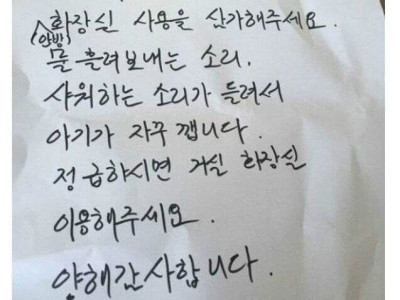 (안방) 화장실 사용을 삼가해주세요.
물 흘려보내는 소리.
샤워하는 소리가 들려서
아기가 자꾸 깹니다.
정 급하시면 거실 화장실
이용해주세요.
양해감사합니다.